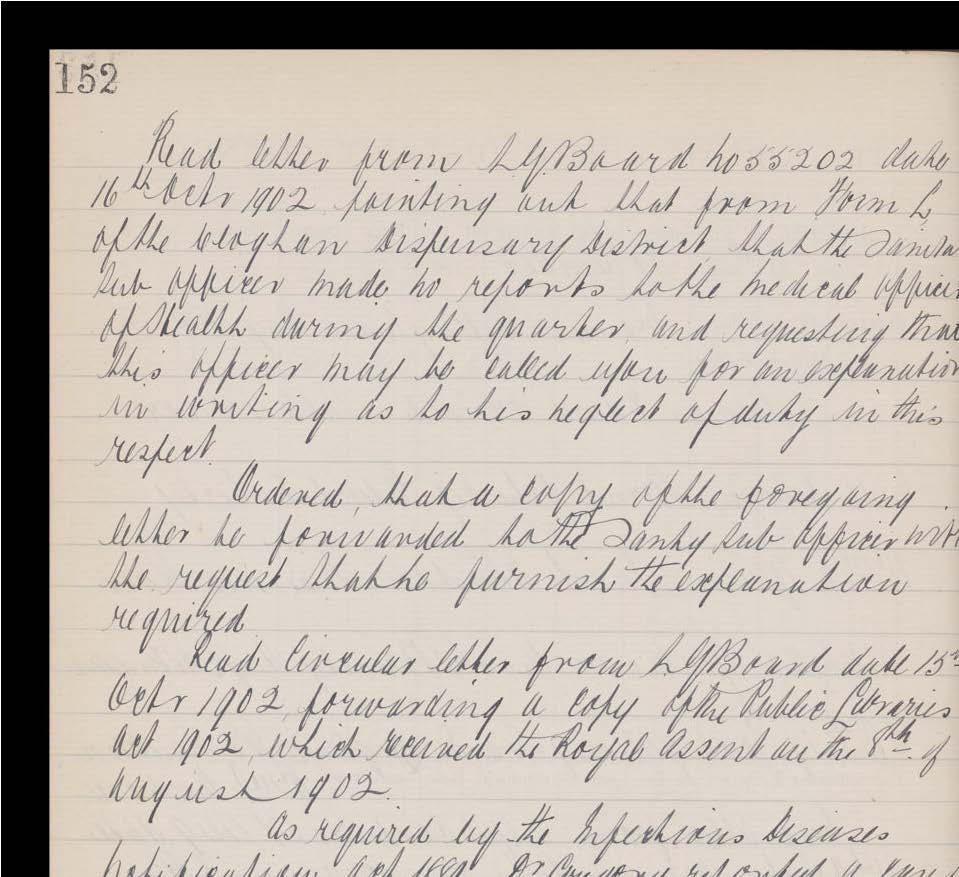 152
Read letter from L.G.Board No 55202 date
16th Octr 1902, pointing out that from Form L
of the Cloghan Dispensary District, that the Sanita
Sub officer made no reports to the Medical Office
of Health during the quarter, and requesting that
this officer may be called upon for an explanation
in writing as to his neglect of duty in this
respect.
Ordered, that a copy of the foregoing
letter be forwarded to the Sanity Sub Officer with
the request that he furnish the explanation
required
Read Circular letter from L.G.Board date 15th
Octr 1902, forwarding a copy of the Public Libraries
Act 1902, which received the Royal Assent on the 8th of
August 1902.
As required by the Infectious Diseases
Notification Act 1889 Dr reported a case